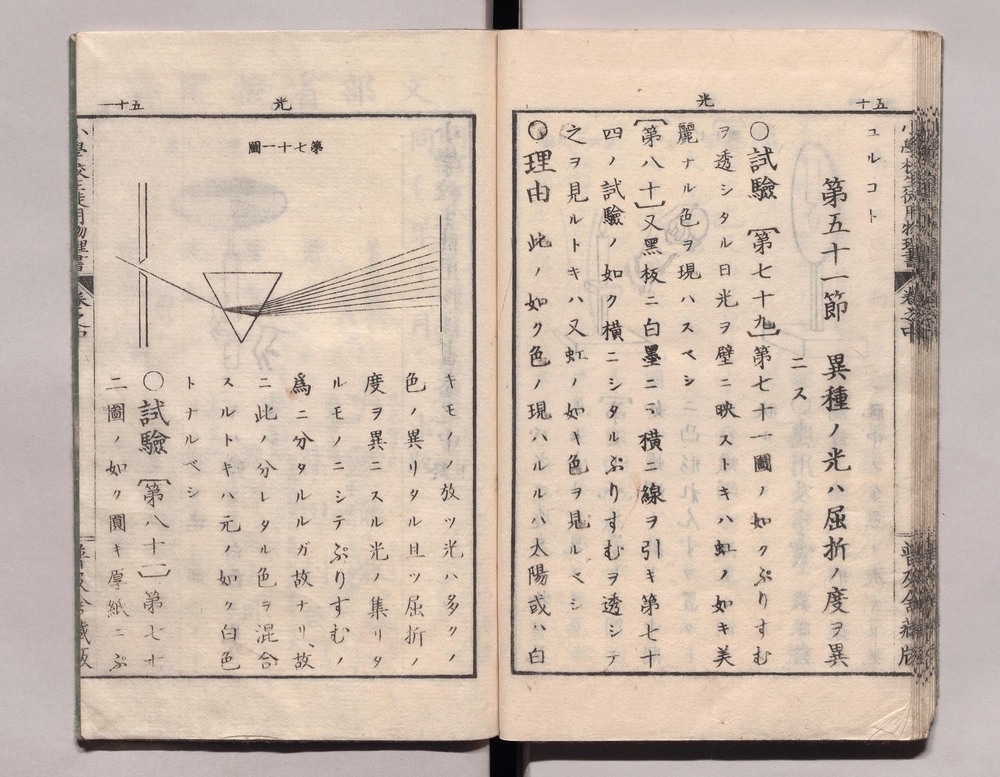 光
五十
ユルコト
第五十一節 異種ノ光ハ屈折ノ度ヲ異
ニス
〇試驗〔第七十九〕第七十一圖ノ如クぷりすむ
ヲ透シタル日光ヲ壁ニ映ストキハ虹ノ如キ美
麗ナル色ヲ現ハスベシ
〔第八十〕又黑板ニ白墨ニテ横ニ線ヲ引キ第七十
四ノ試驗ノ如ク横ニシタルぷりすむヲ透シテ
之ヲ見ルトキハ又虹ノ如キ色ヲ見ルベシ
〇理由 此ノ如ク色ノ現ハルルハ太陽或ハ白
小學校生徒用物理書
卷之中
普及舍藏版
光
五十一
第七十一圖
キモノノ放ツ光ハ多クノ
色ノ異リタル且ツ屈折ノ
度ヲ異ニスル光ノ集リタ
ルモノニシテぷりすむノ
爲ニ分タルルガ故ナリ、故
ニ此ノ分レタル色ヲ混合
スルトキハ元ノ如ク白色
トナルベシ
〇試驗〔第八十一〕第七十
二圖ノ如ク圓キ厚紙ニぷ
小學校生徒用物理書
卷之中
普及舍藏版